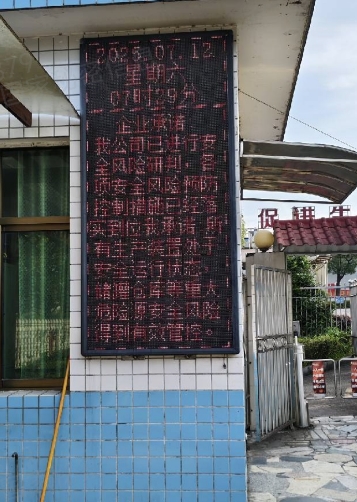 2025.07.12
星期六
07时29分
企业承诺
我公司已进行安
全风险研判，各
项安全风险预防
控制措施已经落
实到位我承诺所
有生产装置处于
安全运行状态，
储罐仓库等重大
危险源安全风险
得到有效管控。
促耕生